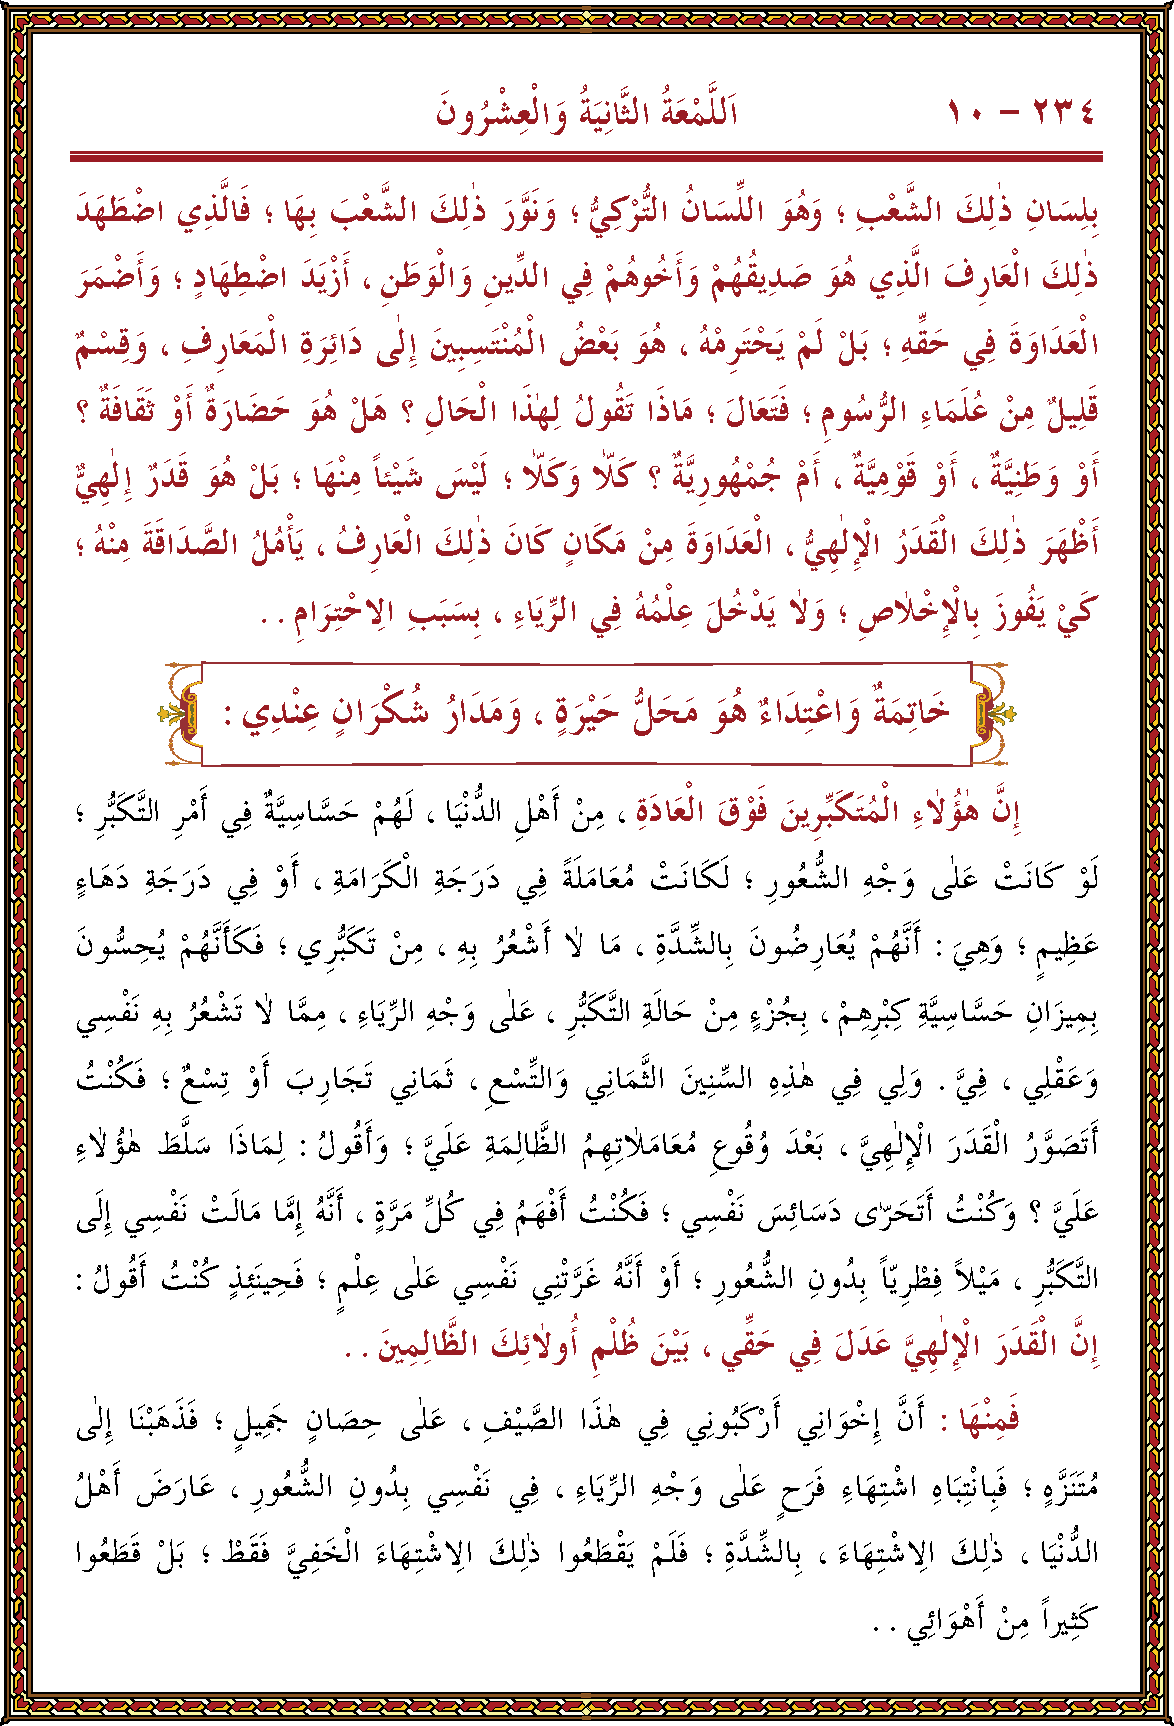 ٢٣٤ – ١٠ اَللَّمْعَةُ الثَّانِيَةُ وَالْعِشْرُونَ
بِلِسَانِ ذٰلِكَ الشَّعْبِ ؛ وَهُوَ اللِّسَانُ التُّرْكِيُّ ؛ وَنَوَّرَ ذٰلِكَ الشَّعْبَ بِهَا ؛ فَالَّذِي اضْطَهَدَ
ذٰلِكَ الْعَارِفَ الَّذِي هُوَ صَدِيقُهُمْ وَأَخُوهُمْ فِي الدِّينِ وَالْوَطَنِ ، أَزْيَدَ اضْطِهَادٍ ؛ وَأَضْمَرَ
الْعَدَاوَةَ فِي حَقِّهِ ؛ بَلْ لَمْ يَحْتَرِمْهُ ، هُوَ بَعْضُ الْمُنْتَسِبِينَ إِلٰى دَائِرَةِ الْمَعَارِفِ ، وَقِسْمٌ
قَلِيلٌ مِنْ عُلَمَاءِ الرُّسُومِ ؛ فَتَعَالَ ؛ مَاذَا تَقُولُ لِهٰذَا الْحَالِ ؟ هَلْ هُوَ حَضَارَةٌ أَوْ ثَقَافَةٌ ؟
أَوْ وَطَنِيَّةٌ ، أَوْ قَوْمِيَّةٌ ، أَمْ جُمْهُورِيَّةٌ ؟ كَلّا وَكَلّا ؛ لَيْسَ شَيْئاً مِنْهَا ؛ بَلْ هُوَ قَدَرٌ إِلٰهِيٌّ
أَظْهَرَ ذٰلِكَ الْقَدَرُ الْإِلٰهِيُّ ، الْعَدَاوَةَ مِنْ مَكَانٍ كَانَ ذٰلِكَ الْعَارِفُ ، يَأْمُلُ الصَّدَاقَةَ مِنْهُ ؛
كَيْ يَفُوزَ بِالْإِخْلاٰصِ ؛ وَلاٰ يَدْخُلَ عِلْمُهُ فِي الرِّيَاءِ ، بِسَبَبِ الِاحْتِرَامِ . .
خَاتِمَةٌ وَاعْتِدَاءٌ هُوَ مَحَلُّ حَيْرَةٍ ، وَمَدَارُ شُكْرَانٍ عِنْدِي :
إِنَّ هٰؤُلاٰءِ الْمُتَكَبِّرِينَ فَوْقَ الْعَادَةِ ، مِنْ أَهْلِ الدُّنْيَا ، لَهُمْ حَسَّاسِيَّةٌ فِي أَمْرِ التَّكَبُّرِ ؛
لَوْ كَانَتْ عَلٰى وَجْهِ الشُّعُورِ ؛ لَكَانَتْ مُعَامَلَةً فِي دَرَجَةِ الْكَرَامَةِ ، أَوْ فِي دَرَجَةِ دَهَاءٍ
عَظِيمٍ ؛ وَهِيَ : أَنَّهُمْ يُعَارِضُونَ بِالشِّدَّةِ ، مَا لاٰ أَشْعُرُ بِهِ ، مِنْ تَكَبُّرِي ؛ فَكَأَنَّهُمْ يُحِسُّونَ
بِمِيزَانِ حَسَّاسِيَّةِ كِبْرِهِمْ ، بِجُزْءٍ مِنْ حَالَةِ التَّكَبُّرِ ، عَلٰى وَجْهِ الرِّيَاءِ ، مِمَّا لاٰ تَشْعُرُ بِهِ نَفْسِي
وَعَقْلِي ، فِيَّ . وَلِي فِي هٰذِهِ السِّنِينَ الثَّمَانِي وَالتِّسْعِ ، ثَمَانِي تَجَارِبَ أَوْ تِسْعٌ ؛ فَكُنْتُ
أَتَصَوَّرُ الْقَدَرَ الْإِلٰهِيَّ ، بَعْدَ وُقُوعِ مُعَامَلاٰتِهِمُ الظَّالِمَةِ عَلَيَّ ؛ وَأَقُولُ : لِمَاذَا سَلَّطَ هٰؤُلاٰءِ
عَلَيَّ ؟ وَكُنْتُ أَتَحَرّٰى دَسَائِسَ نَفْسِي ؛ فَكُنْتُ أَفْهَمُ فِي كُلِّ مَرَّةٍ ، أَنَّهُ إِمَّا مَالَتْ نَفْسِي إِلَى
التَّكَبُّرِ ، مَيْلاً فِطْرِيّاً بِدُونِ الشُّعُورِ ؛ أَوْ أَنَّهُ غَرَّتْنِي نَفْسِي عَلٰى عِلْمٍ ؛ فَحِينَئِذٍ كُنْتُ أَقُولُ :
إِنَّ الْقَدَرَ الْإِلٰهِيَّ عَدَلَ فِي حَقِّي ، بَيْنَ ظُلْمِ أُولاٰئِكَ الظَّالِمِينَ . .
فَمِنْهَا : أَنَّ إِخْوَانِي أَرْكَبُونِي فِي هٰذَا الصَّيْفِ ، عَلٰى حِصَانٍ جَمِيلٍ ؛ فَذَهَبْنَا إِلٰى
مُتَنَزَّهٍ ؛ فَبِانْتِبَاهِ اشْتِهَاءِ فَرَحٍ عَلٰى وَجْهِ الرِّيَاءِ ، فِي نَفْسِي بِدُونِ الشُّعُورِ ، عَارَضَ أَهْلُ
الدُّنْيَا ، ذٰلِكَ الِاشْتِهَاءَ ، بِالشِّدَّةِ ؛ فَلَمْ يَقْطَعُوا ذٰلِكَ الِاشْتِهَاءَ الْخَفِيَّ فَقَطْ ؛ بَلْ قَطَعُوا
كَثِيراً مِنْ أَهْوَائِي . .